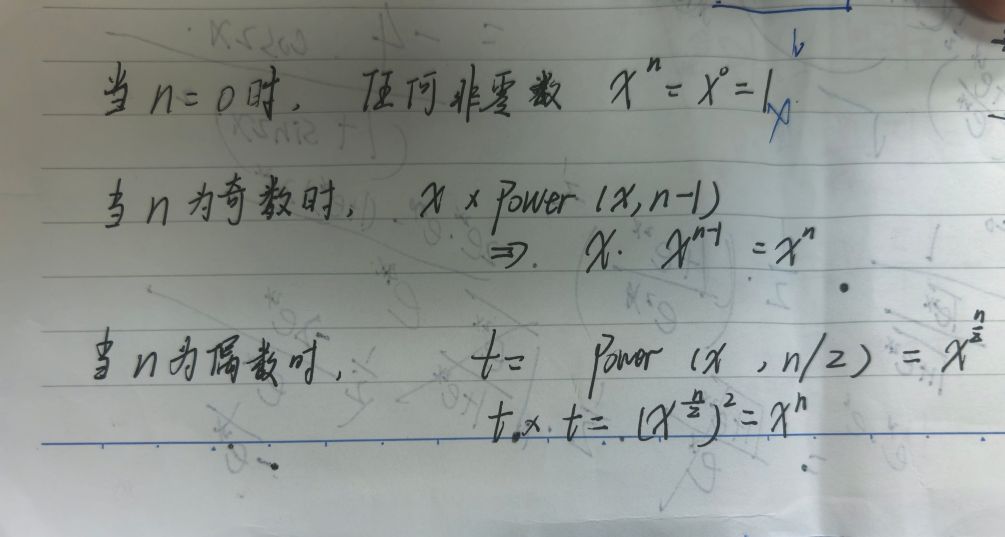 当 n = 0 时, 任何非零数 xⁿ = x⁰ = 1
当 n 为奇数时, x × Power (x, n-1)
⇒ x · xⁿ⁻¹ = xⁿ
当 n 为偶数时, t = Power (x , n/2) = x^(n/2)
t × t = (x^(n/2))² = xⁿ